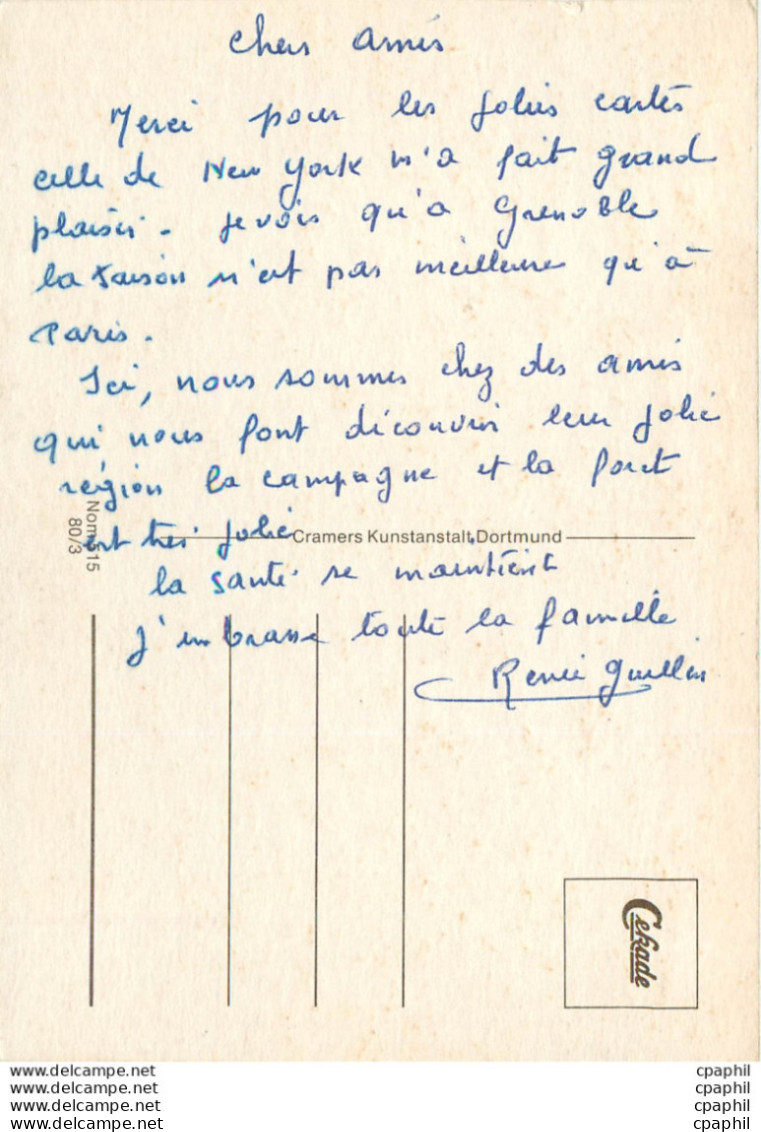 Chers amis
Merci pour les jolies cartes
celle de New York m'a fait grand
plaisir. Je vois qu'à Grenoble
la saison n'est pas meilleure qu'à
Paris.
Ici, nous sommes chez des amis
qui nous font découvrir leur jolie
région la campagne et la foret
est très jolie
Cramers Kunstanstalt, Dortmund
Nom 515
80/3
la santé se maintient
J'embrasse toute la famille
Renée
Cekade
www.delcampe.net
www.delcampe.net
www.delcampe.net
www.delcampe.net
cpaphil
cpaphil
cpaphil
cpaphil